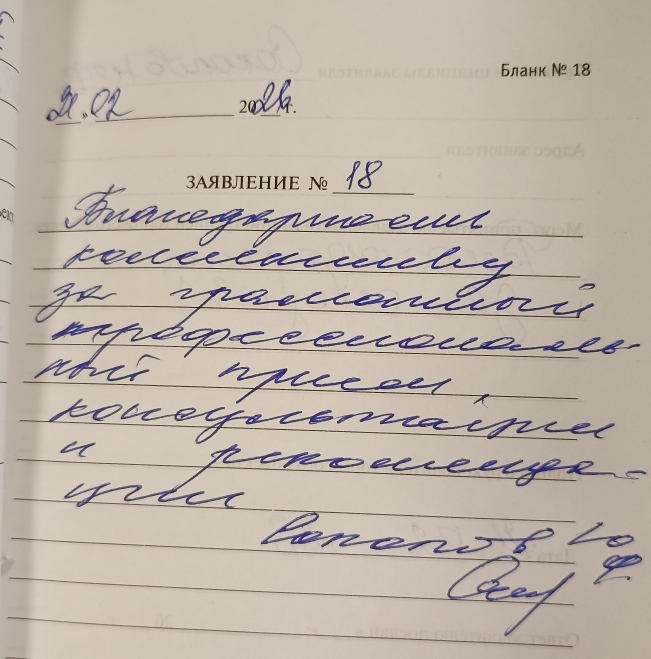 Бланк № 18
21.02 2024г.
ЗАЯВЛЕНИЕ № 18
Благодарности
коллективу
за грамотный
профессиональ-
ный прием,
консультации
и рекоменда-
ции